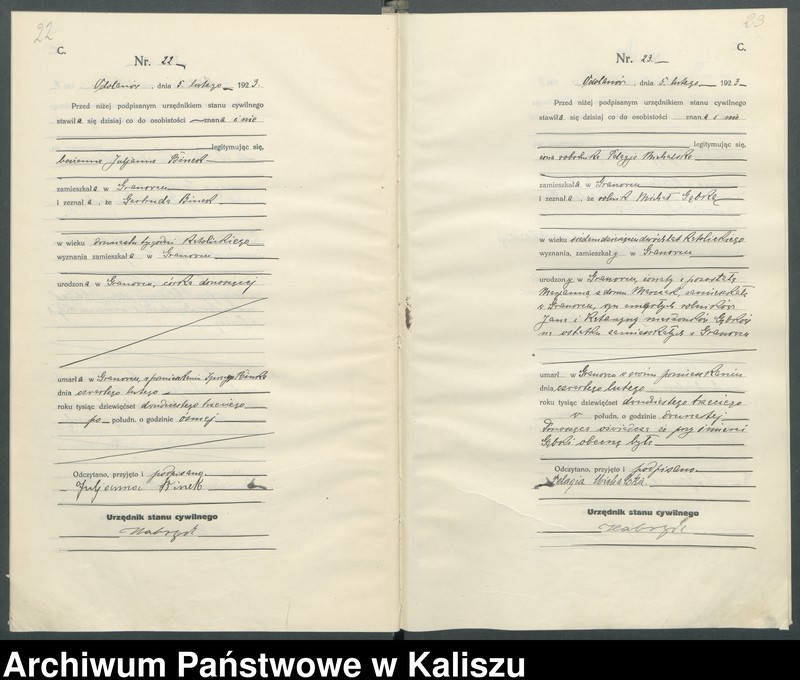 22
C.
Nr. 22
Odolanów, dnia 5. lutego 1923.
Przed niżej podpisanym urzędnikiem stanu cywilnego
stawiła się dzisiaj co do osobistości znana i nie
legitymując się,
Juljanna Binek
zamieszkała w Granowcu
i zeznała, że Gertruda Binek
w wieku tygodni katolickiego
wyznania zamieszkała w Granowcu
urodzona w Granowcu, córka donoszącej
umarła w Granowcu, w pomieszkaniu Binka
dnia czwartego lutego
roku tysiąc dziewięćset dwudziestego trzeciego
po połudn. o godzinie ósmej
Odczytano, przyjęto i podpisano
Juljanna Binek
Urzędnik stanu cywilnego
23
C.
Nr. 23
Odolanów, dnia 5. lutego 1923
Przed niżej podpisanym urzędnikiem stanu cywilnego
stawiła się dzisiaj co do osobistości znana i nie
legitymując się,
żona robotnika Pelagja Michalska
zamieszkała w Granowcu
i zeznała, że rolnik Michał Gąbka
w wieku siedemdziesięciu dwóch lat katolickiego
wyznania, zamieszkały w Granowcu
urodzony w Granowcu, żonaty z pozostałą
Marjanną z domu zamieszkałą
w Granowcu, syn zmarłych rolników
Jana i Katarzyny małżonków Gąbków
na ostatku zamieszkałych w Granowcu
umarł w Granowcu w swoim pomieszkaniu
dnia czwartego lutego
roku tysiąc dziewięćset dwudziestego trzeciego
w połudn. o godzinie dwunastej
Donosząca oświadcza że przy śmierci
Gąbki obecną była
Odczytano, przyjęto i podpisano
Pelagia Michalska
Urzędnik stanu cywilnego
Archiwum Państwowe w Kaliszu